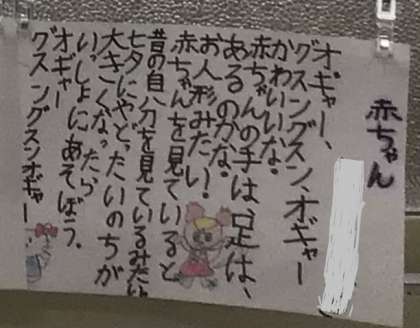 赤ちゃん
オギャー、
グスングスン、オギャー
かわいいな。
赤ちゃんの手は、足は、
あるのかな。
お人形みたい!
赤ちゃんを見ていると
昔の自分を見ているみたい
七夕にやどったいのちが
大きくなったら
いっしょにあそぼう。
オギャー
グスングスンオギャー